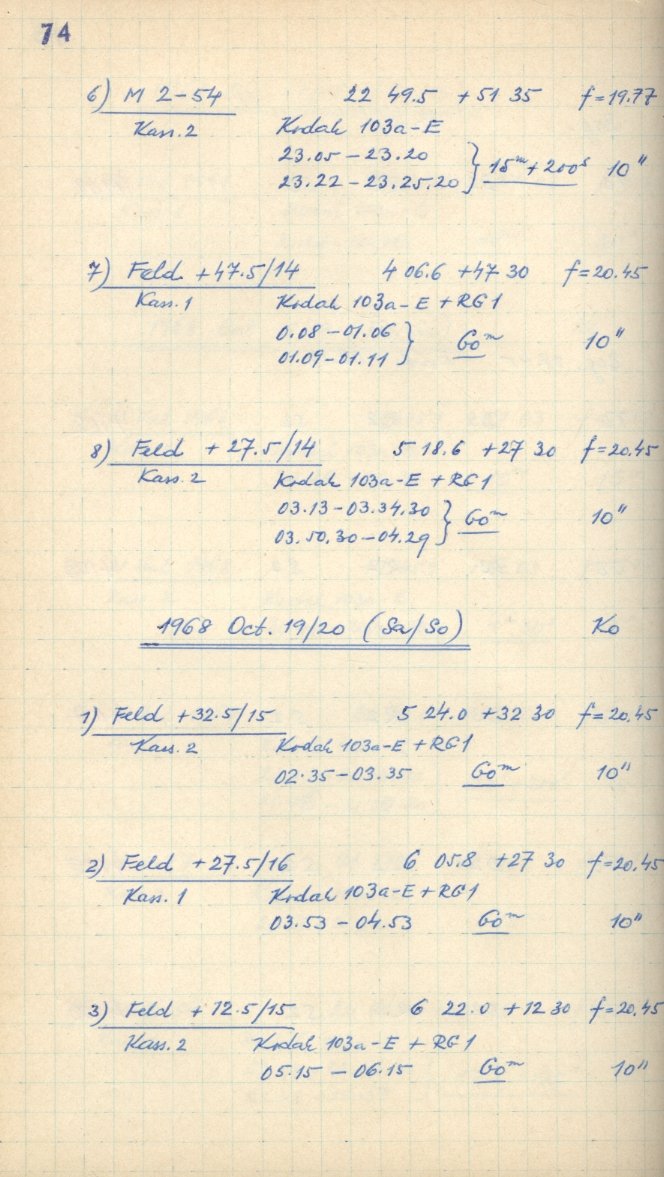 74
6) M 2-54 22 49.5 +51 35 f=19.77
Kass. 2 Kodak 103a-E
23.05 – 23.20
23.22 – 23.25.20 } 15ᵐ + 200ˢ 10"
7) Feld +47.5/14 4 06.6 +47 30 f=20.45
Kass. 1 Kodak 103a-E + RG1
0.08 – 01.06
01.09 – 01.11 } 60ᵐ 10"
8) Feld +27.5/14 5 18.6 +27 30 f=20.45
Kass. 2 Kodak 103a-E + RG1
03.13 – 03.34.30
03.50.30 – 04.29 } 60ᵐ 10"
1968 Oct. 19/20 (Sa/So) Ko
1) Feld +32.5/15 5 24.0 +32 30 f=20.45
Kass. 2 Kodak 103a-E + RG1
02.35 – 03.35 60ᵐ 10"
2) Feld +27.5/16 6 05.8 +27 30 f=20.45
Kass. 1 Kodak 103a-E + RG1
03.53 – 04.53 60ᵐ 10"
3) Feld +12.5/15 6 22.0 +12 30 f=20.45
Kass. 2 Kodak 103a-E + RG1
05.15 – 06.15 60ᵐ 10"